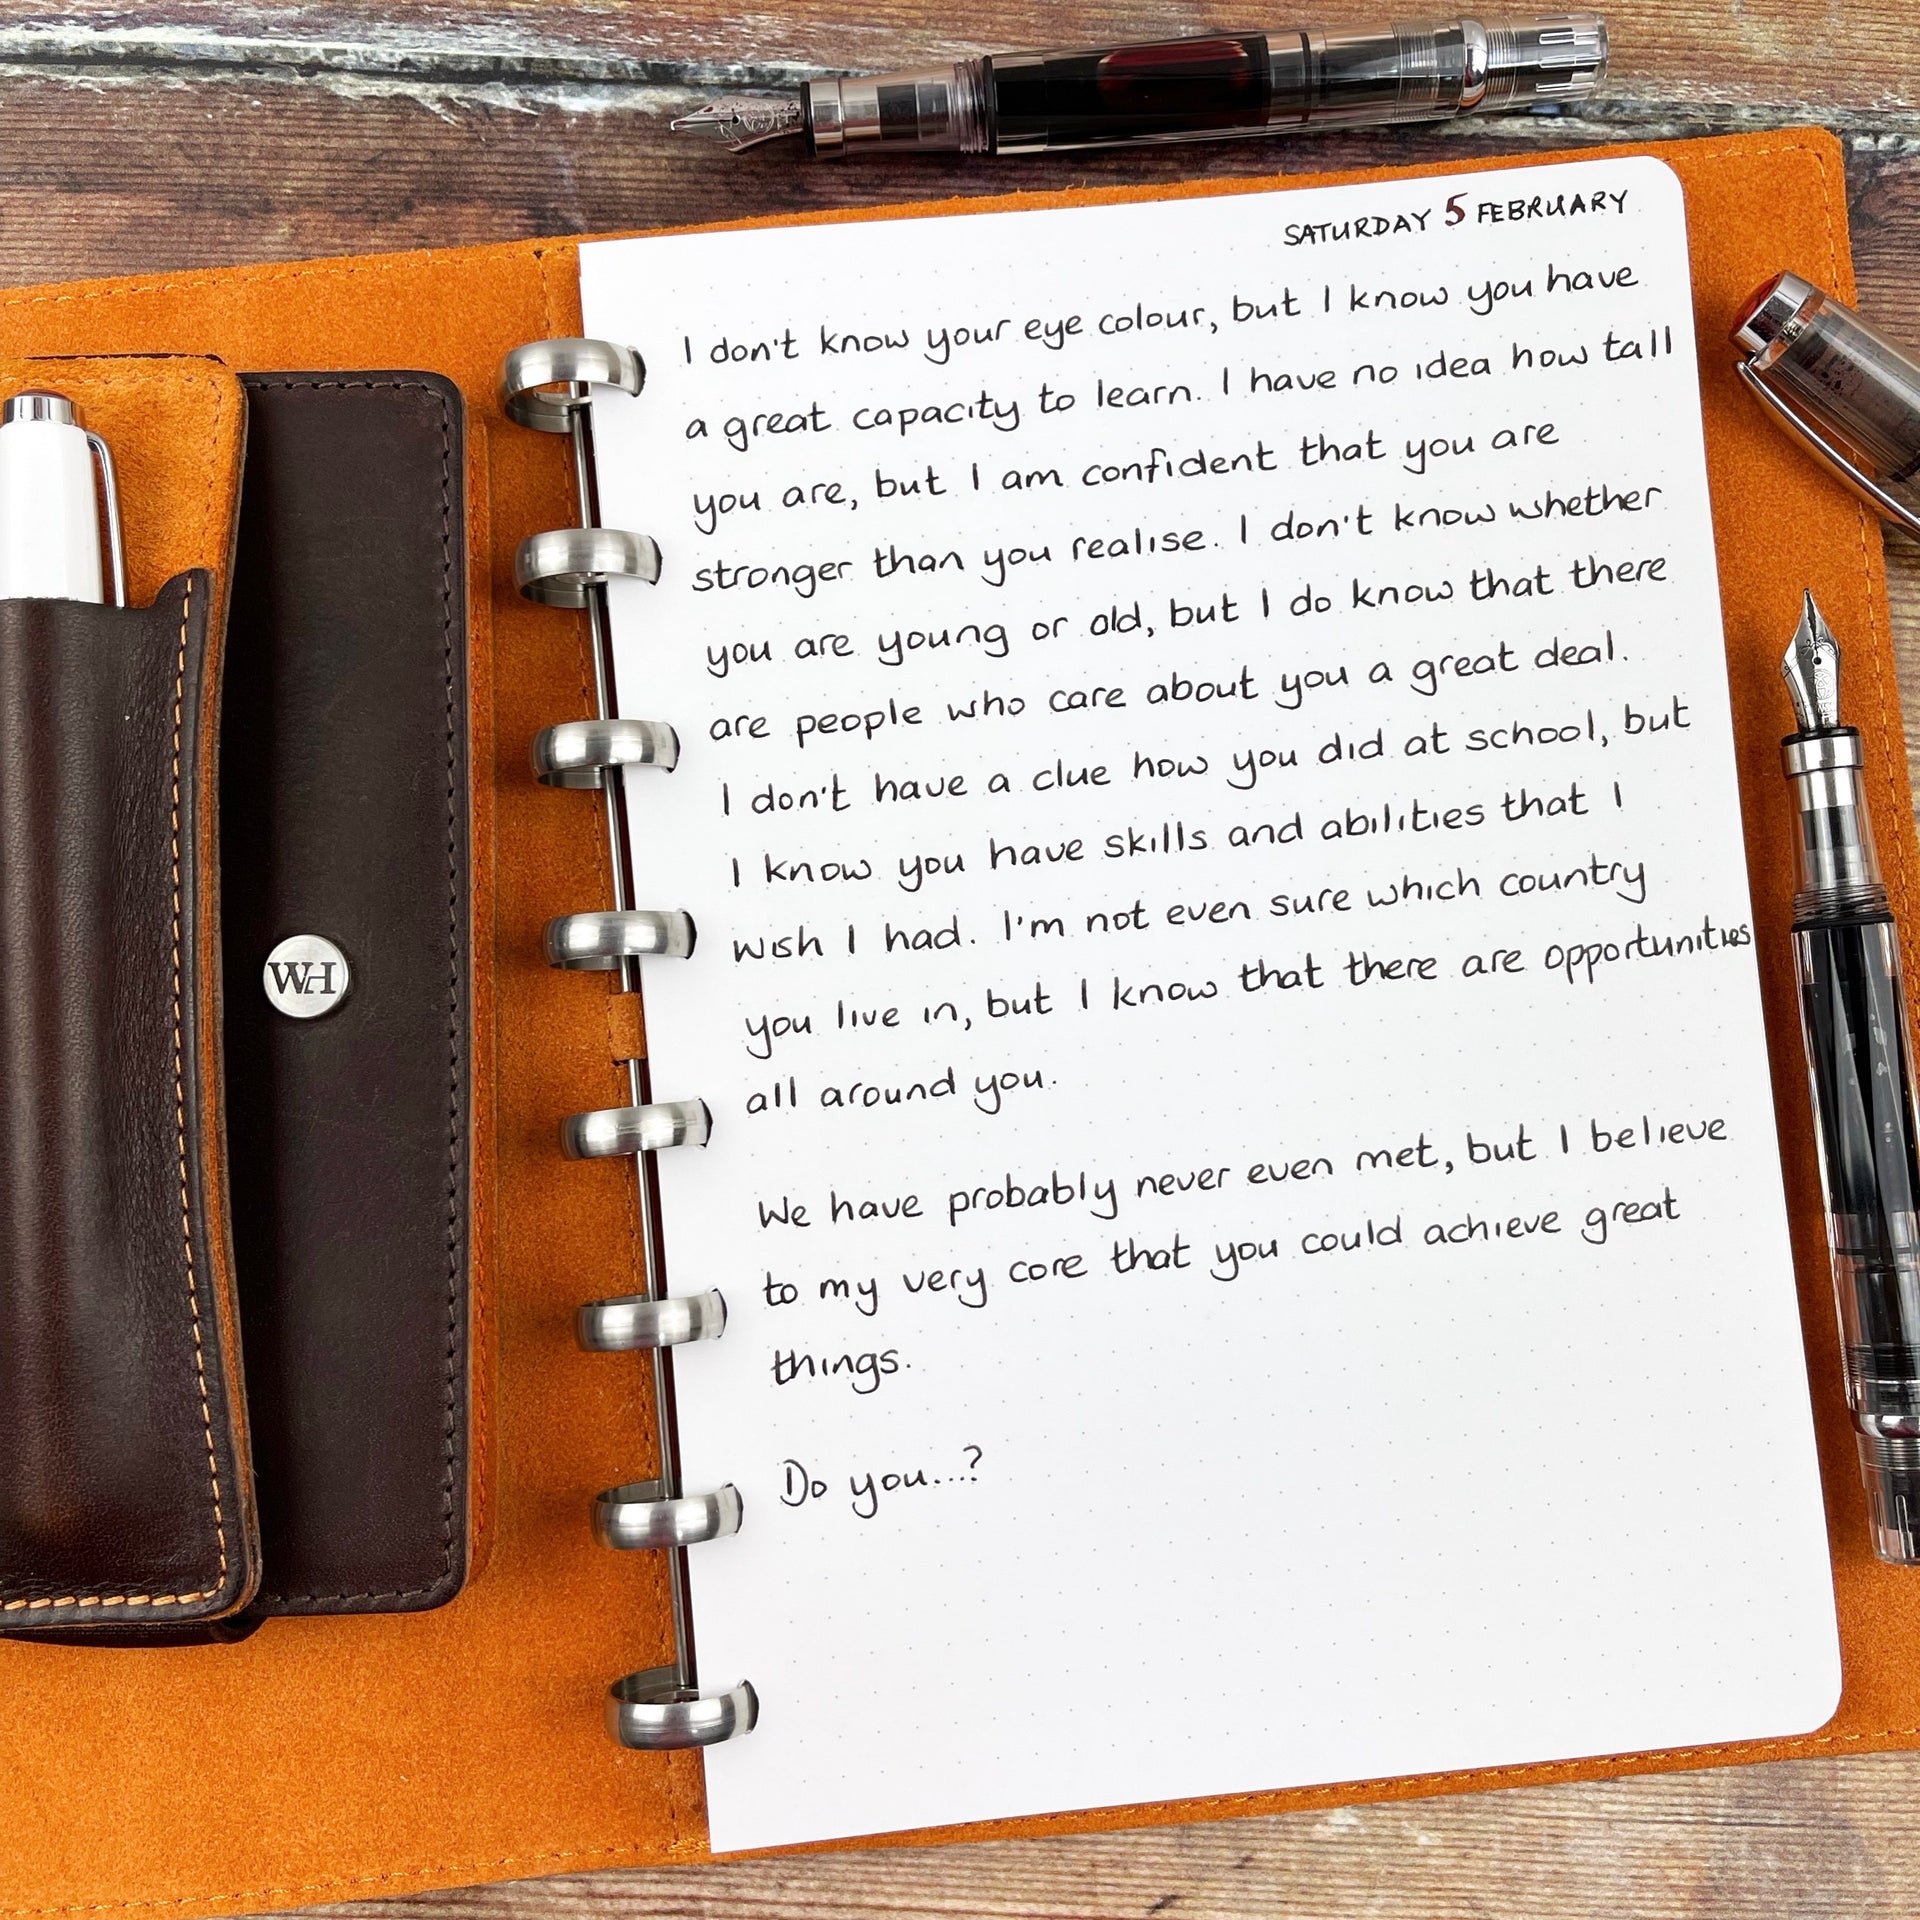 WH
SATURDAY 5 FEBRUARY
I don't know your eye colour, but I know you have
a great capacity to learn. I have no idea how tall
you are, but I am confident that you are
stronger than you realise. I don't know whether
you are young or old, but I do know that there
are people who care about you a great deal.
I don't have a clue how you did at school, but
I know you have skills and abilities that I
wish I had. I'm not even sure which country
you live in, but I know that there are opportunities
all around you.
We have probably never even met, but I believe
to my very core that you could achieve great
things.
Do you...?